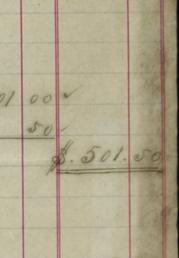 01 00 ✓
50 ✓
$. 501.50